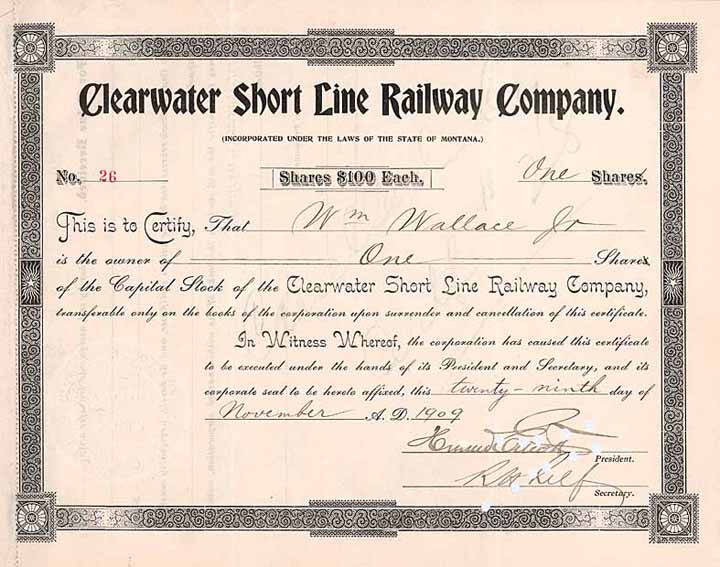 Clearwater Short Line Railway Company.
(INCORPORATED UNDER THE LAWS OF THE STATE OF MONTANA.)
No. 26 Shares $100 Each. One Shares.
This is to Certify, That Wm Wallace Jr
is the owner of One Shares
of the Capital Stock of the Clearwater Short Line Railway Company,
transferable only on the books of the corporation upon surrender and cancellation of this certificate.
In Witness Whereof, the corporation has caused this certificate
to be executed under the hands of its President and Secretary, and its
corporate seal to be hereto affixed, this twenty-ninth day of
November A.D. 1909
President.
R H Relf
Secretary.